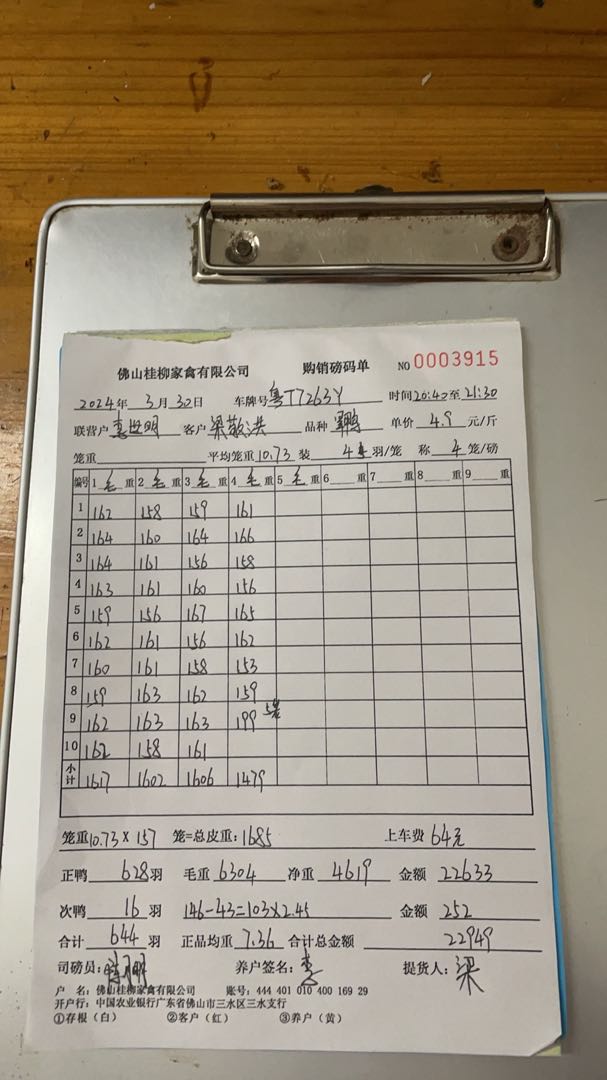 佛山桂柳家禽有限公司 购销磅码单 NO 0003915
2024年 3月 30日 车牌号 粤T7263Y 时间 20:40 至 21:30
联营户 客户 梁敬洪 品种 单价 4.9 元/斤
笼重 平均笼重 10.73 装 4 羽/笼 称 4 笼/磅
编号 1 毛 重 2 毛 重 3 毛 重 4 毛 重 5 毛 重 6 重 7 重 8 重 9 重
1 162 158 159 161
2 164 160 164 166
3 164 161 156 158
4 163 161 160 156
5 159 156 167 165
6 162 161 156 162
7 160 161 158 153
8 159 163 162 159
9 162 163 163 199 5笼
10 162 158 161
小计 1617 1602 1606 1479
笼重 10.73 × 157 笼=总皮重: 1685 上车费 64元
正鸭 628 羽 毛重 6304 净重 4619 金额 22633
次鸭 16 羽 146-43=103×2.45 金额 252
合计 644 羽 正品均重 7.36 合计总金额 22949
司磅员: 养户签名: 提货人: 梁
户 名: 佛山桂柳家禽有限公司 账号: 444 401 010 400 169 29
开户行: 中国农业银行广东省佛山市三水区三水支行
①存根（白） ②客户（红） ③养户（黄）